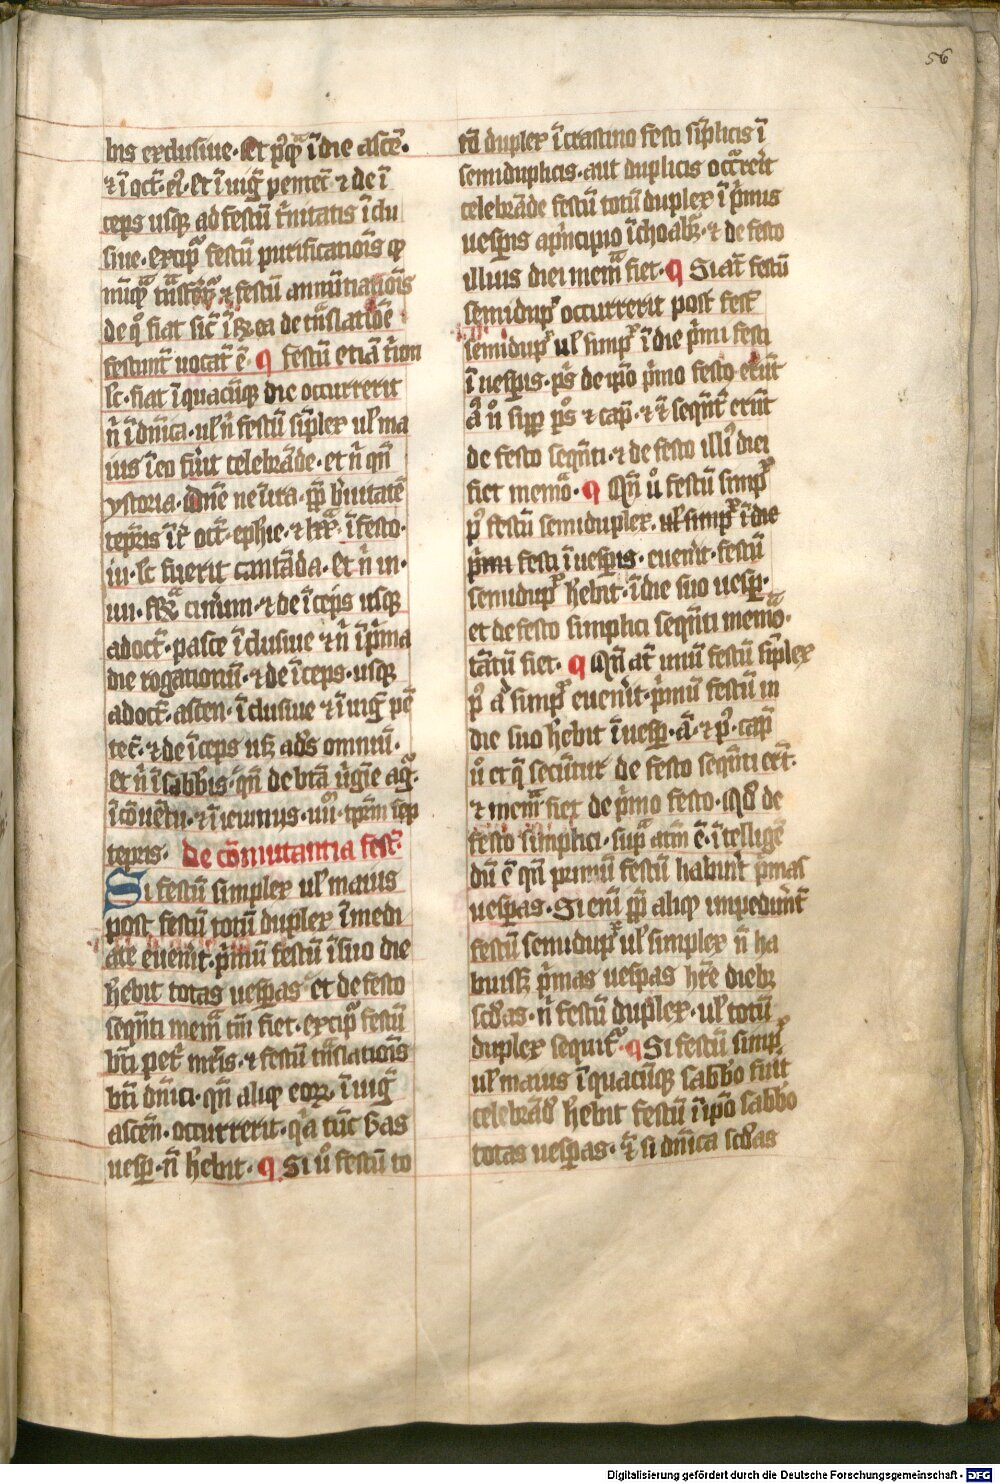 56
bus exclusiue. Et p̄ꝗ̄ ī die ascē.
⁊ ī oct̄. eꝰ. et ī uiḡ pentec̄. ⁊ deī
ceps usq̨ ad festū t̄nitatis īclu
siue. excip̄ festū purificatiōis
⁊ festū annūtiatiōis
de qͦ fiat sic̄ de trā̄slatiōe
uocat̄ ē ¶ festū etiā triū
lc̄. fiat ī quacūq̨ die occurrerit
n̄ ī dn̄ica. ul̓ n̄ festū sīplex ul̓ ma
ius ī eo fūit celebrāde. et n̄ qn̄
ystoria. Dn̄e ne ī ira. pp̄ b̓uitatē
tēpris īt̄ oct̄. ephie. ⁊ lxx̄. ī festo.
iii. lc̄ fuerit cantāda. et n̄ in.
cinerum. ⁊ deīceps usq̨
ad oct̄. pasce īclusiue ⁊ n̄ ī p̄ma
die rogationū. ⁊ deīceps. usq̨
ad oct̄. ascen. īclusiue ⁊ ī uig̓ pē
tec̄. ⁊ deīceps
et n̄ ī sabbis. qn̄ de btā ūgīe aḡ.
ī cōuētu. ⁊ ī ieiuniis. tp̄rm sep
tēpris. De cōmutantia fest̄.
Si festū simplex ul̓ maius
post festū totū duplex īmedi
ate euen̄it. p̄mū festū ī suo die
h̓ebit totas uesp̄as et de festo
seqn̄ti mem̄ tm̄ fiet. excip̄ festū
bt̄i pet̄ mr̄is. ⁊ festū trā̄slatiōis
bt̄i dn̄ici. qn̄ aliqͩ eoꝝ. ī uig̓
ascēn. occurrerit. qͣa tūc s̄as
uesp̄. n̄ h̓ebit. ¶ Si u̓o festū to
tū duplex ī crastino festi sīplicis ī
semiduplicis. aut duplicis occ̄reīt
celebrāde festū totū duplex ī p̄mis
uesp̄is a p̄ncipio īchoabr̄. ⁊ de festo
illius diei mem̄ fiet. ¶ Si at̄ festū
semidup̓ occurrerit post fest̄
semidup̓ ul̓ simp̓ ī die p̄mi festi
ī uesp̄is. p̄s de ip̄o p̄mo festo erūt
ā u̓o sup̄ p̄s ⁊ cap̄. ⁊ seqn̄t̄ erūt
de festo seqn̄ti. ⁊ de festo illiꝰ diei
fiet memō. ¶ Qn̄ u̓o festū simp̓
pͦ festū semiduplex. ul̓ simp̓ ī die
p̄mi festi ī uesp̄is. euenīt. festū
semidup̓ h̓ebīt. ī die suo uesp̄.
et de festo simplici seqn̄ti memō.
tātū fiet. ¶ Qn̄ at̄ unū festū sīplex
pͦ ad̓ simp̓ euen̄it. p̄mū festū in
die suo h̓ebit ī uesp̄. ā. ⁊ pͦ. cap̄
u̓o et q̄ secūtur de festo seqn̄ti er̄t.
⁊ mem̄ fiet de p̄mo festo. Qd̓ de
festo simplici. sup̄ a tm̄ ē. ītelligē
dū ē qn̄ primū festū habun̄t p̄mas
uesp̄as. Si enī pp̄ aliqͩ impedim̄t̄
festū semidup̓ ul̓ simplex n̄ ha
buissꝫ p̄mas uesp̄as h̄re diebꝫ
sc̄das. n̄ festū duplex. ul̓ totū
duplex sequit̄. ¶ Si festū simp̓
ul̓ maius ī quacūq̨ sabbo fuīt
celebrād̓ h̓ebit festū ī ip̄o sabbo
totas uesp̄as. ⁊ si dn̄ica sc̄das
Digitalisierung gefördert durch die Deutsche Forschungsgemeinschaft - DFG